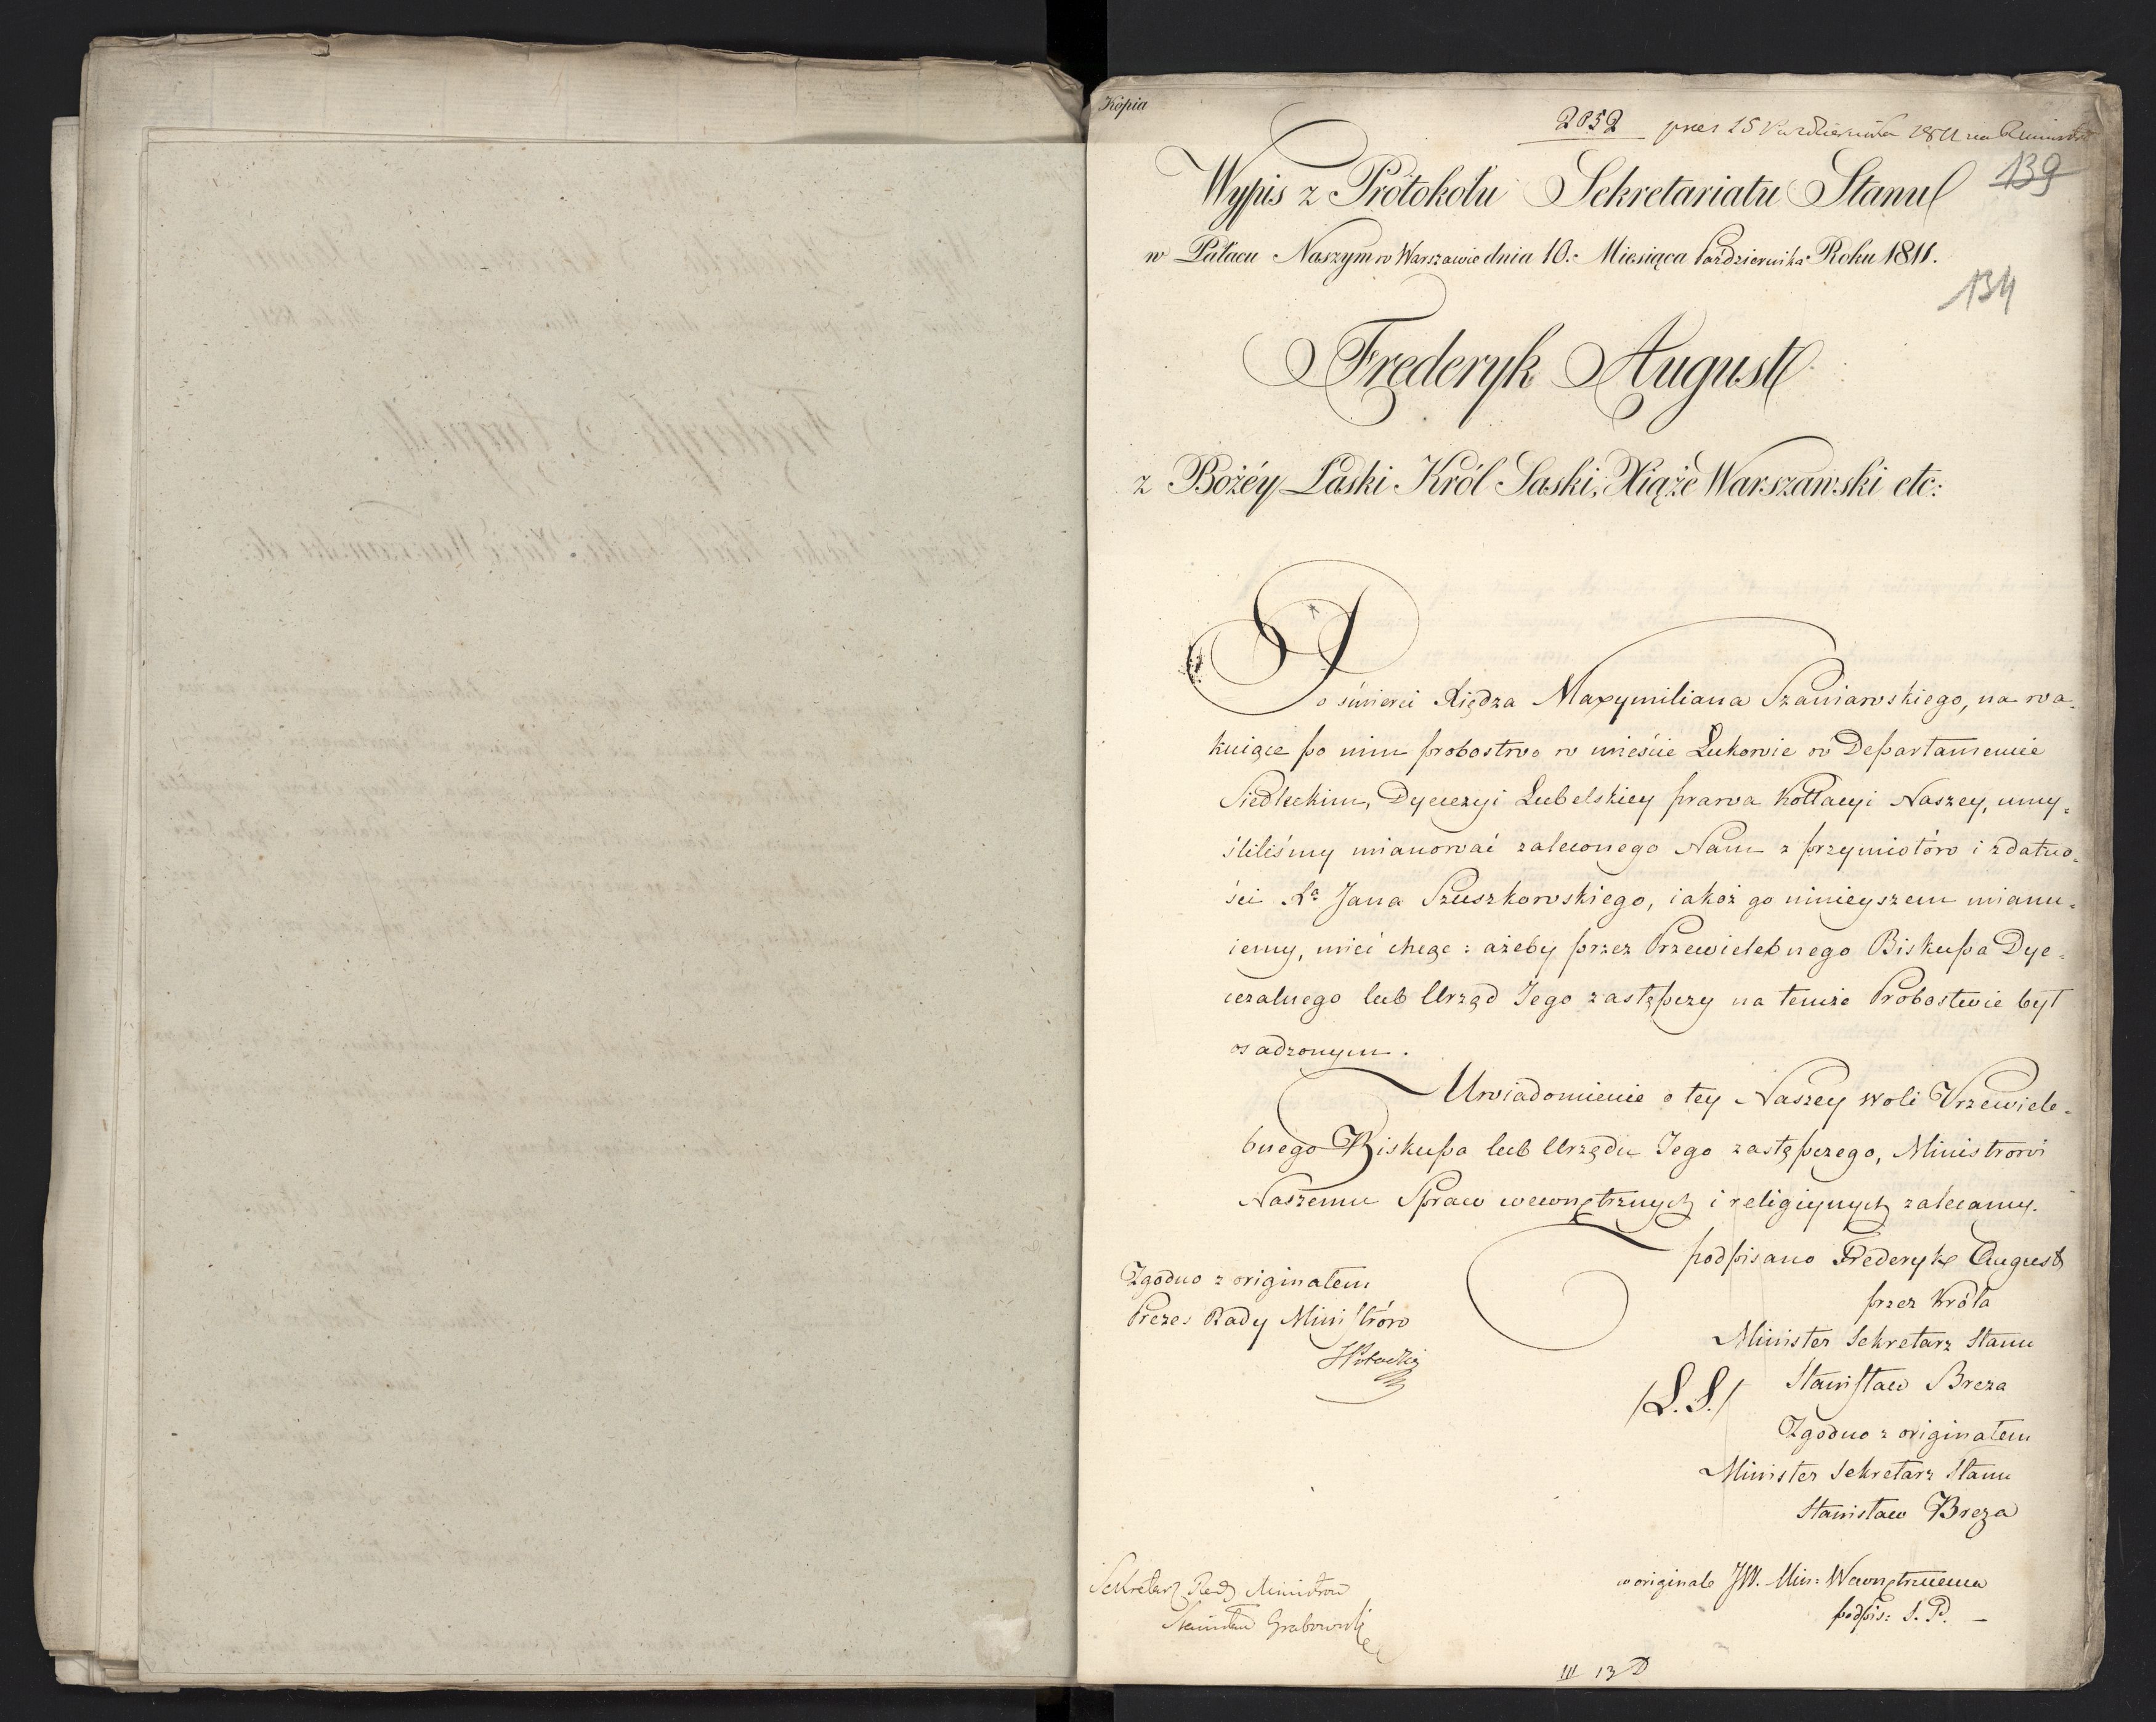 Kopia
2052 prez 15 Października 1811
139
Wypis z Protokołu Sekretariatu Stanu
w Pałacu Naszym w Warszawie dnia 10. Miesiąca Października Roku 1811.
134
Frederyk August
z Bożéy Łaski Król Saski, Xiąże Warszawski etc:
Po śmierci Xiędza Maxymiliana Szaniawskiego, na wa-
kuiące po nim probostwo w mieście Łukowie w Departamencie
Siedleckim, Dyecezyi Lubelskiey prawa Kollacyi Naszey, umy-
śliliśmy mianować zaleconego Nam z przymiotów i zdatno-
ści Xa Jana Szuszkowskiego, iakoż go ninieyszem mianu-
iemy, mieć chcąc: ażeby przez Przewielebnego Biskupa Dye-
cezalnego lub Urząd Jego zastępczy na temże Probostwie był
osadzonym.
Uwiadomienie o tey Naszey woli Przewiele-
bnego Biskupa lub Urzędu Jego zastępczego, Ministrowi
Naszemu Spraw wewnętrznych i religiynych zalecamy.
podpisano Frederyk August
przez Króla
Minister Sekretarz Stanu
/L.S./ Stanisław Breza
Zgodno z originałem
Minister Sekretarz Stanu
Stanisław Breza
Zgodno z originałem
Prezes Rady Ministrów
SPotocki
Sekretarz Rady Ministrow
Stanisław Grabowski
w originale JW. Min: Wewnętrznemu
podpis: S. P. —
III 13 D